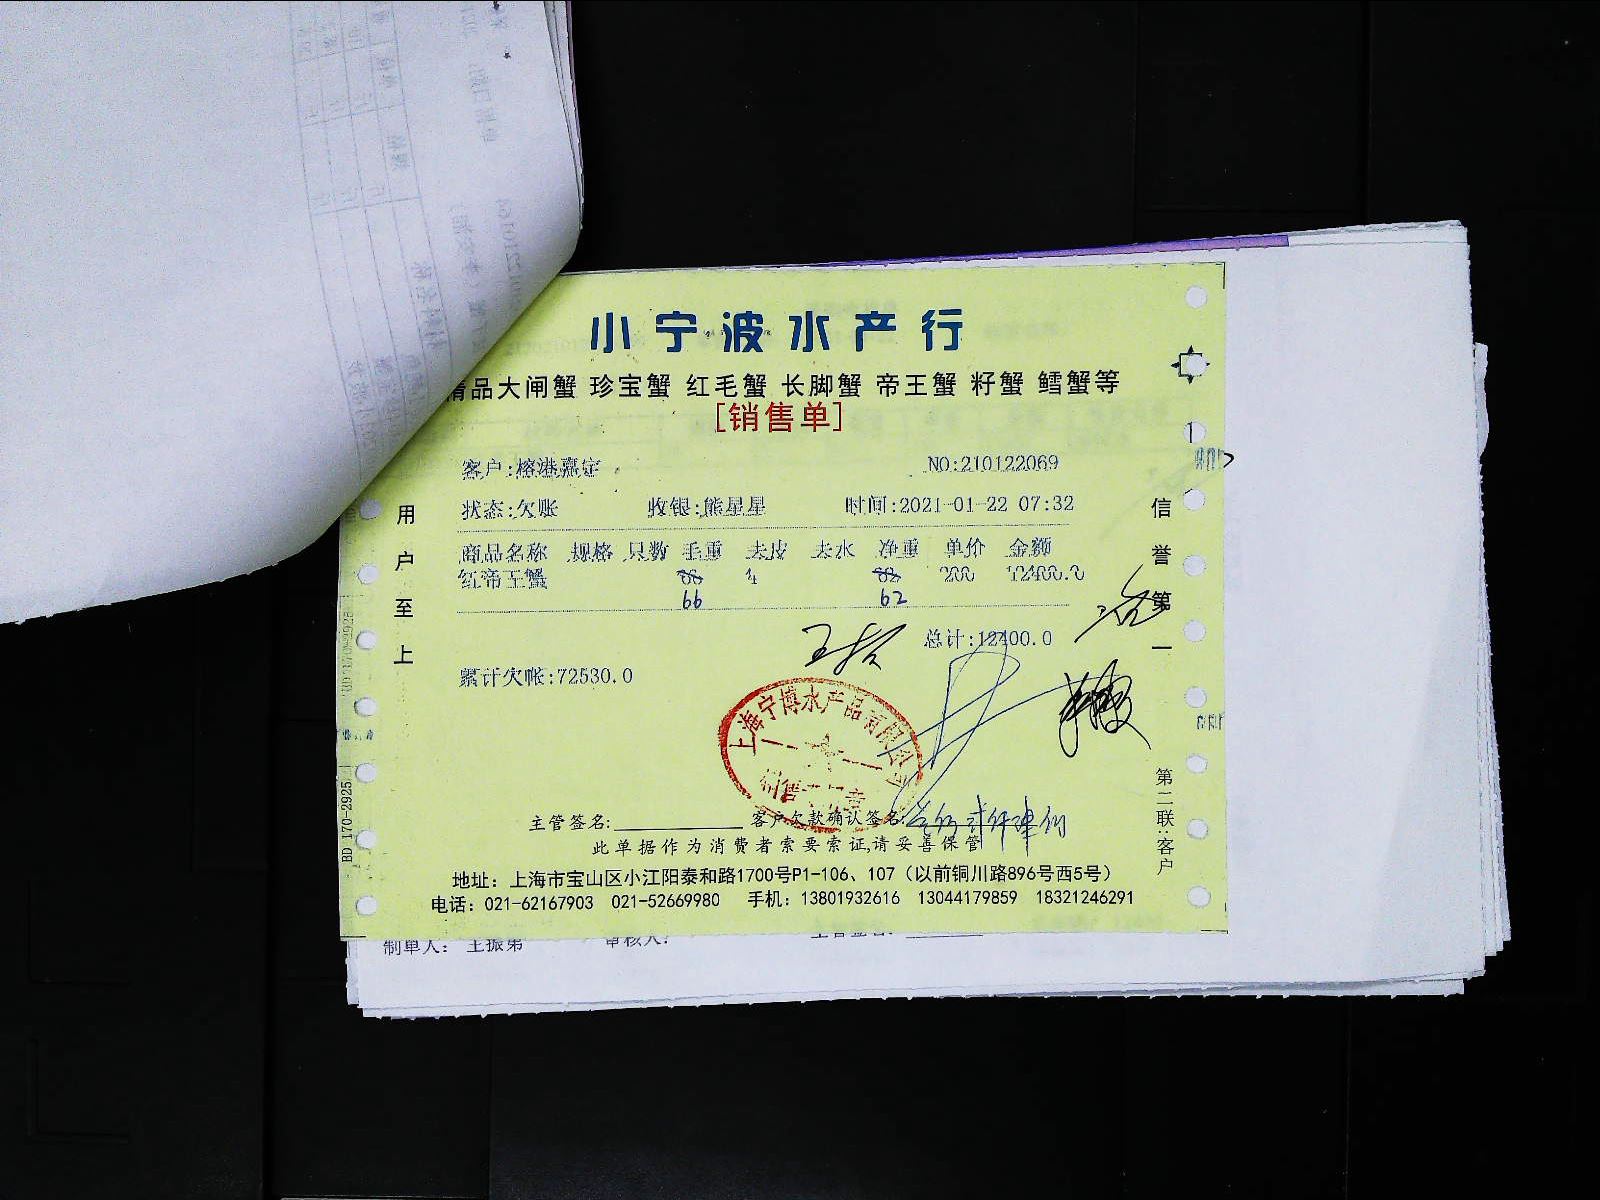 小宁波水产行
精品大闸蟹 珍宝蟹 红毛蟹 长脚蟹 帝王蟹 籽蟹 鳕蟹等
[销售单]
客户:榕港嘉定 NO:210122069
状态:欠账 收银:熊星星 时间:2021-01-22 07:32
商品名称 规格 只数 毛重 去皮 去水 净重 单价 金额
红帝王蟹 4 200 12400.0
66 62
总计:12400.0
累计欠帐:72530.0
用户至上
信誉第一
上海宁博水产品有限公司
第二联:客户
BD 170-2925
主管签名: 客户欠款确认签名:
此单据作为消费者索要索证,请妥善保管
地址: 上海市宝山区小江阳泰和路1700号P1-106、107 (以前铜川路896号西5号)
电话: 021-62167903 021-52669980 手机: 13801932616 13044179859 18321246291
制单人: 王振第 审核人: